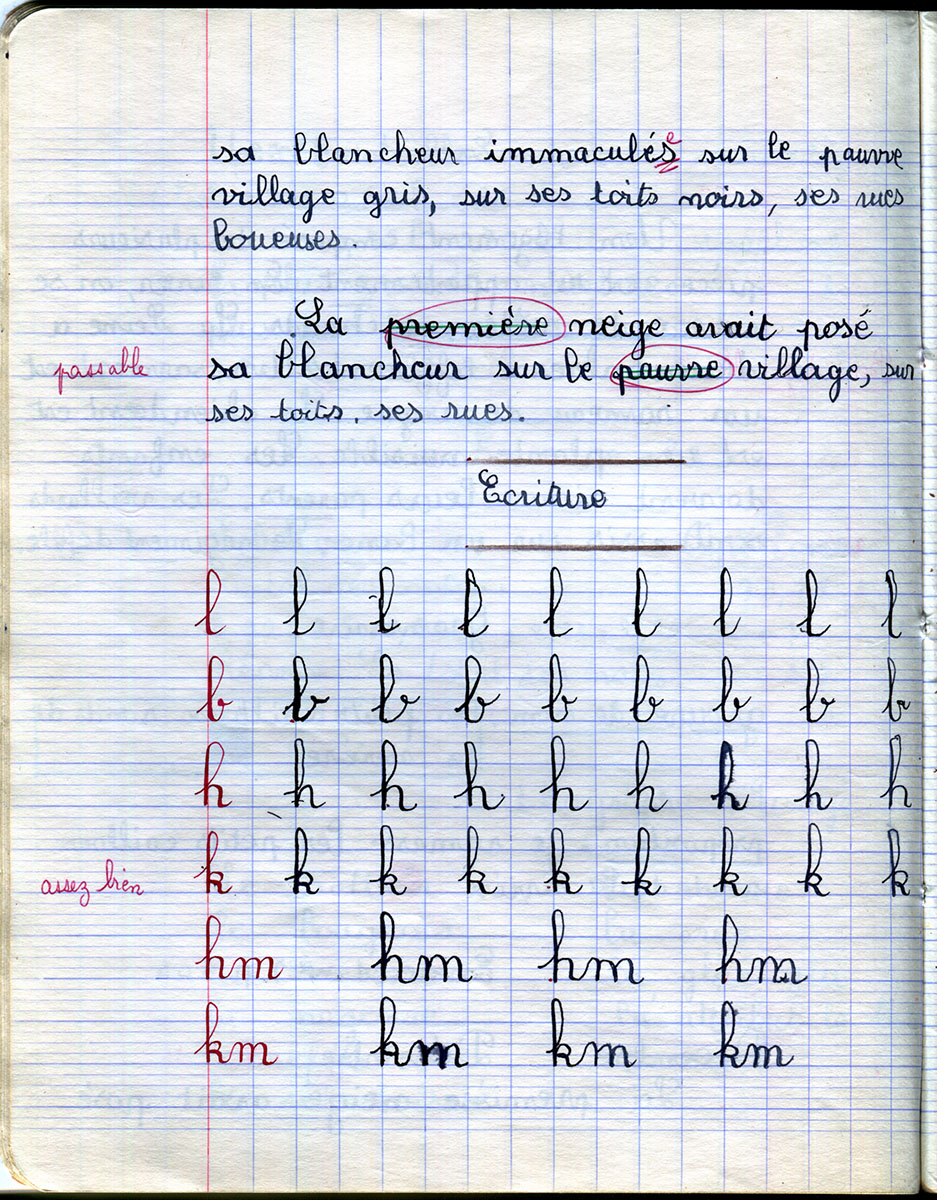 sa blancheur immaculés e sur le pauvre
village gris, sur ses toits noirs, ses rues
boueuses.
La première neige avait posé
passable sa blancheur sur le pauvre village, sur
ses toits, ses rues.
Ecriture
l l l l l l l l l
b b b b b b b b b
h h h h h h h h h
assez bien k k k k k k k k k
hm hm hm hm
km km km km